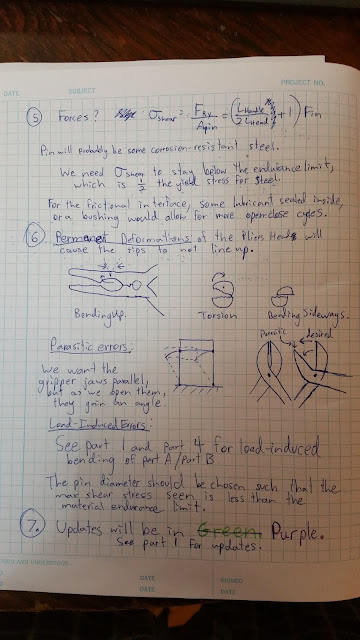 DATE SUBJECT PROJECT NO.
5 Forces? σshear = FRx / Apin = (LHandle / 2 LHead + 1) Fin
Pin will probably be some corrosion-resistant steel.
We need σshear to stay below the endurance limit,
which is 1/2 the yield stress for steel.
For the frictional interface, some lubricant sealed inside,
or a bushing would allow for more open close cycles.
6 Permanent Deformations of the Pliers Heads will
cause the tips to not line up.
Bending Up. Torsion Bending Sideways.
Parasitic errors: Parasitic desired
We want the
gripper jaws parallel,
but as we open them,
they gain an angle.
Load-Induced Errors:
See part 1 and part 4 for load-induced
bending of part A/part B
The pin diameter should be chosen such that the
max shear stress seen is less than the
material endurance limit.
7. Updates will be in Green Purple.
See part 1 for updates.
AND UNDERSTOOD
DATE SIGNED
DATE DATE